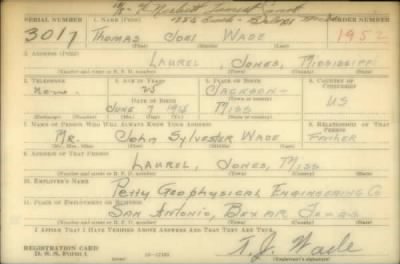 SERIAL NUMBER
1. NAME (Print)
ORDER NUMBER
3017
Thomas Joel Wade
1952
(First) (Middle) (Last)
2. ADDRESS (Print)
Laurel, Jones, Mississippi
(Number and street or R. F. D. number) (Town) (County) (State)
3. TELEPHONE
4. AGE IN YEARS
5. PLACE OF BIRTH
6. COUNTRY OF CITIZENSHIP
None
Jackson
(Town or county)
US
DATE OF BIRTH
June 7
Miss
(Mo.) (Day) (Yr.)
(State or country)
7. NAME OF PERSON WHO WILL ALWAYS KNOW YOUR ADDRESS
8. RELATIONSHIP OF THAT PERSON
Mr. John Sylvester Wade
Father
(Mr., Mrs., Miss) (First) (Middle) (Last)
9. ADDRESS OF THAT PERSON
Laurel, Jones, Miss
(Number and street or R. F. D. number) (Town) (County) (State)
10. EMPLOYER'S NAME
Petty Geophysical Engineering Co
11. PLACE OF EMPLOYMENT OR BUSINESS
San Antonio, Bexar Texas
(Number and street or R. F. D. number) (Town) (County) (State)
I AFFIRM THAT I HAVE VERIFIED ABOVE ANSWERS AND THAT THEY ARE TRUE.
REGISTRATION CARD
D. S. S. Form 1
T. J. Wade
(Registrant's signature)